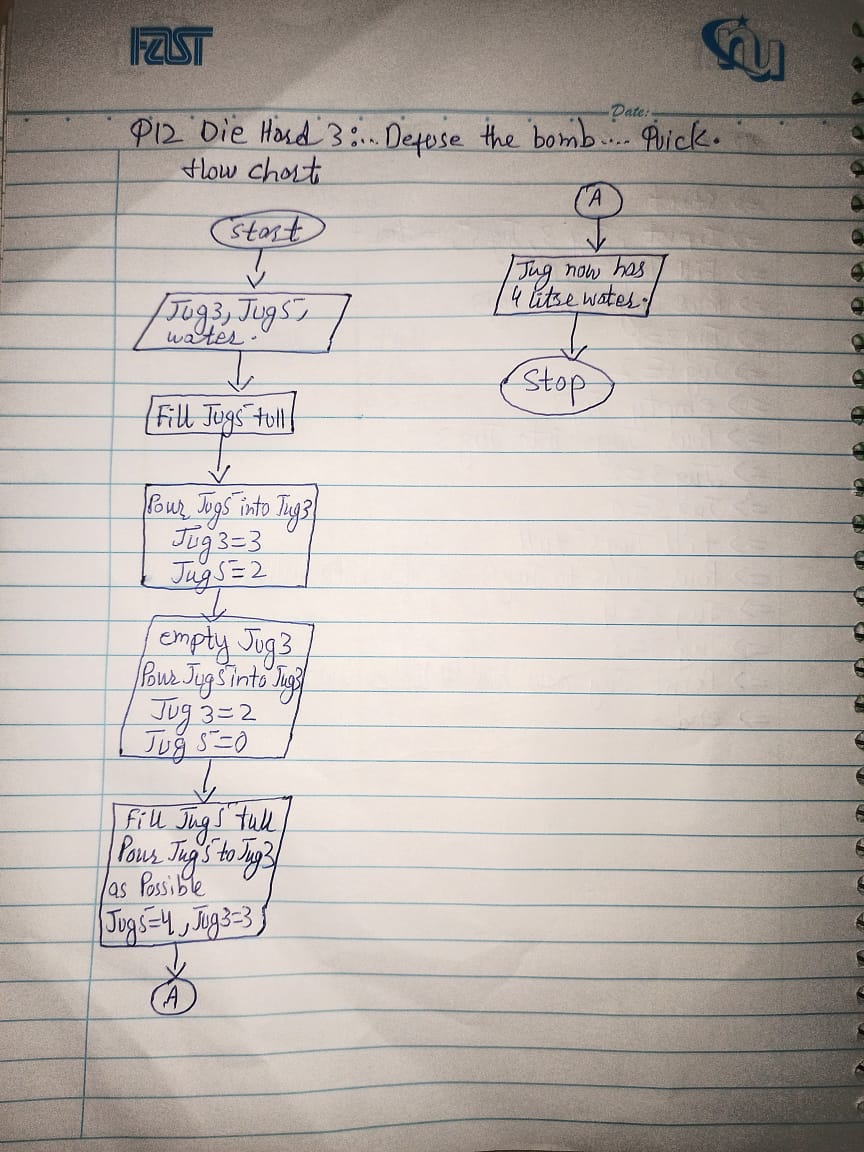 FAST
nu
Date:
Q12 Die Hard 3:... Defuse the bomb.... Quick.
flow chart
start
Jug3, Jug5,
water.
Fill Jug5 full
Pour Jug5 into Jug3
Jug3=3
Jug5=2
empty Jug3
Pour Jug5 into Jug3
Jug 3=2
Jug 5=0
Fill Jug5 full
Pour Jug5 to Jug3
as Possible
Jug5=4, Jug3=3
A
A
Jug now has
4 litre water.
Stop